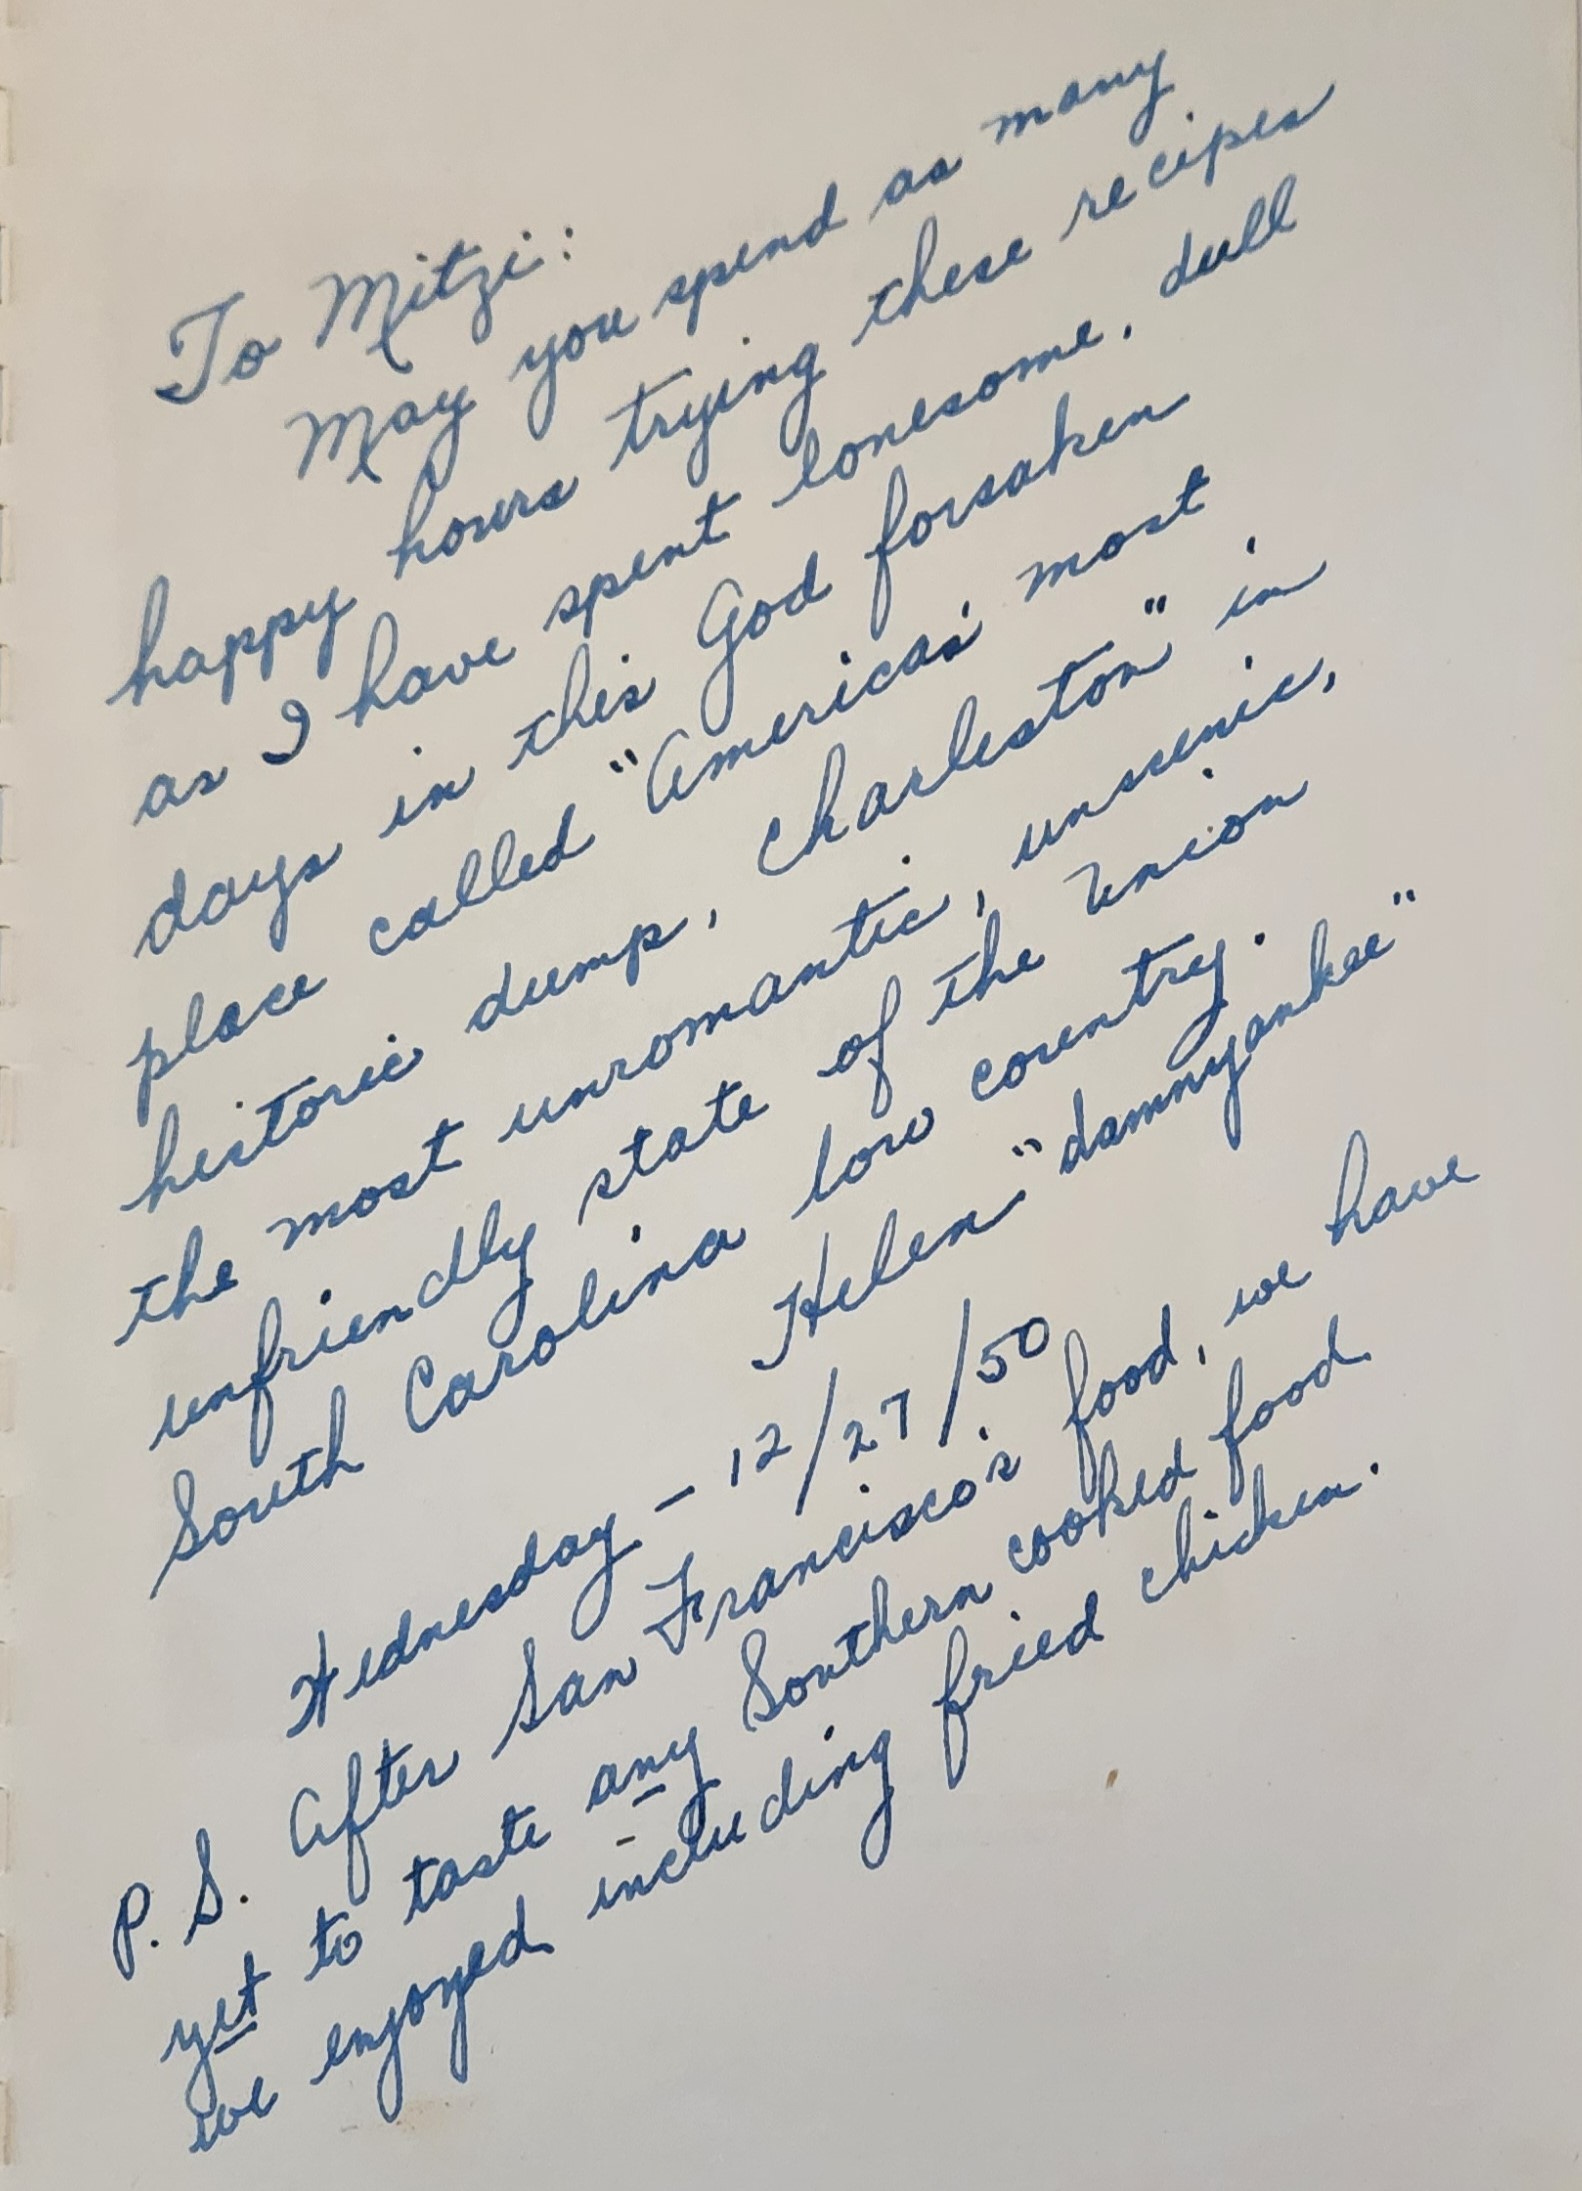 To Mitzi:
May you spend as many
happy hours trying these recipes
as I have spent lonesome, dull
days in this God forsaken
place called "Americas' most
historic dump, Charleston" in
the most unromantic, unscenic,
unfriendly state of the Union
South Carolina low country.
Helen "damnyankee"
Wednesday - 12/27/50
P.S. After San Francisco's food, we have
yet to taste any Southern cooked food
we enjoyed including fried chicken.